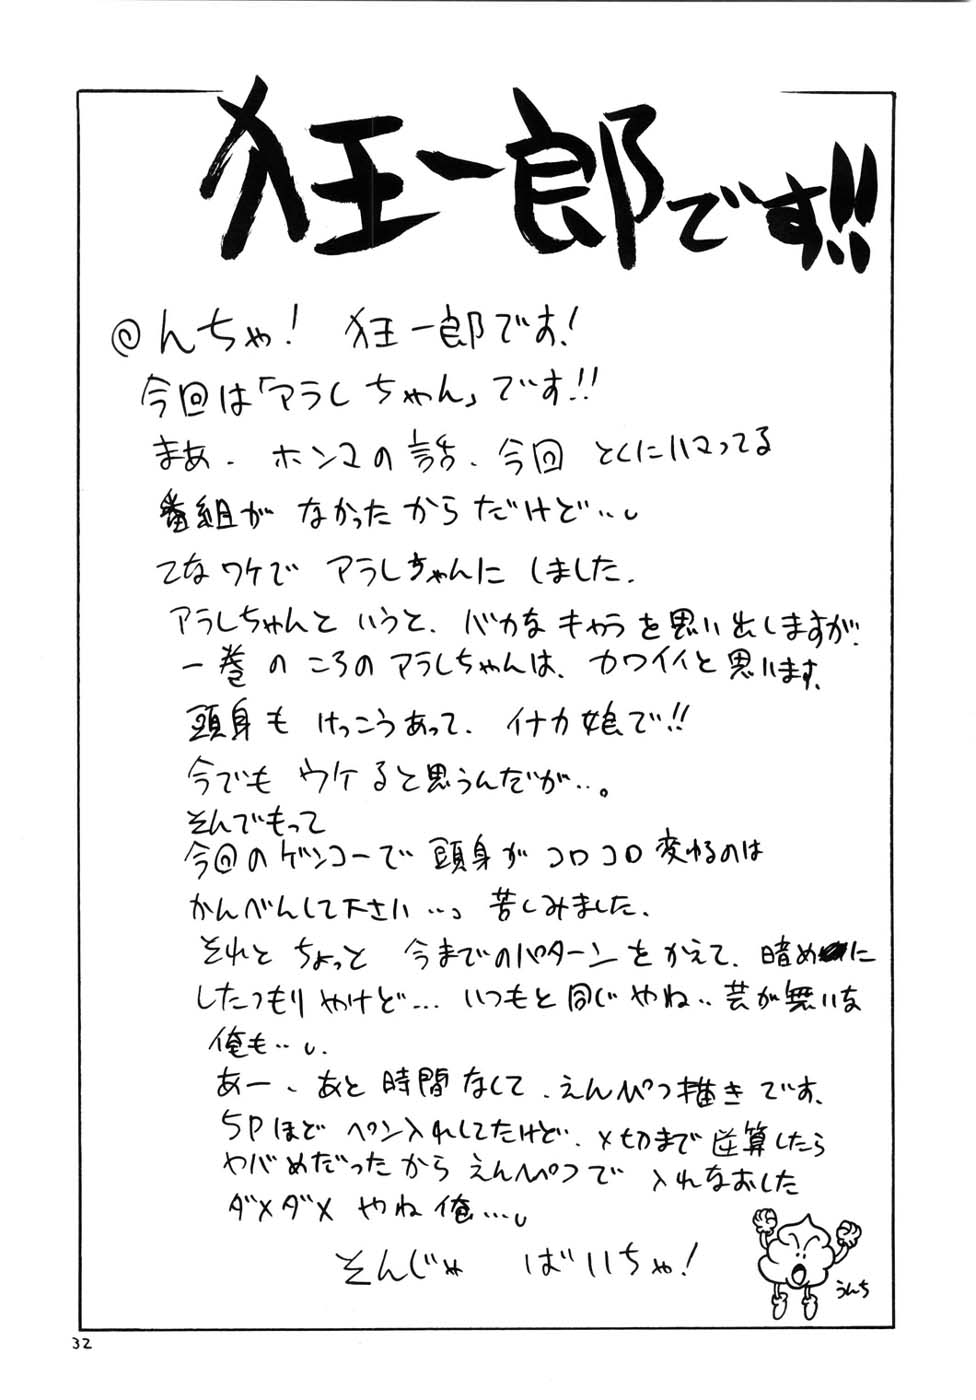 狂一郎です!!
@んちゃ! 狂一郎です!
今回は「アラレちゃん」です!!
まあ、ホンマの話、今回 とくにハマってる
番組が なかったからだけど…。
てなワケで アラレちゃんに しました。
アラレちゃんと いうと、バカな キャラを思い出しますが、
一巻の ころの アラレちゃんは、カワイイと思います。
頭身も けっこうあって、イナカ娘で!!
今でも ウケると思うんだが…。
そんでもって
今回のゲンコーで 頭身が コロコロ変わるのは
かんべんして下さい…。苦しみました。
それと ちょっと 今までのパターンを かえて、暗めに
したつもり やけど… いつもと同じやね‥芸が無いな
俺も…。
あー、あと 時間なくて、えんぴつ描きです。
5Pほど ペン入れしてたけど、〆切まで 逆算したら
ヤバめだったから えんぴつで 入れなおした
ダメダメ やね俺…。
そんじゃ ばいちゃ!
うんち
32